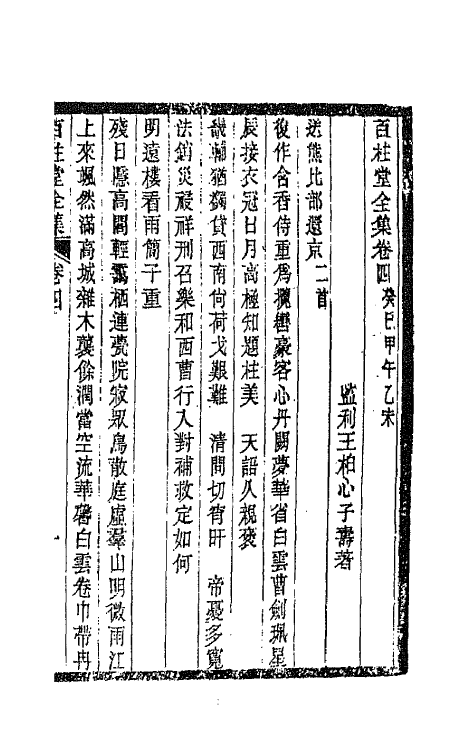 百柱堂全集卷四 癸巳甲午乙未
監利王柏心子壽著
送熊比部還京二首
後作含香侍重爲攬轡豪客心丹闕夢華省白雲曹劍珮星
辰接衣冠日月高極知題柱美 天語久親褒
畿輔猶蠲貸西南尙荷戈艱難 清問切宵旰 帝憂多寬
法銷災祲祥刑召樂和西曹行入對補救定如何
明遠樓看雨簡子重
殘日隱高閣輕靄栖連甍院寂眾鳥散庭虛羣山明微雨江
上來颯然滿高城雜木襲餘潤當空流華馨白雲卷巾帶冉
百柱堂全集 卷四 一